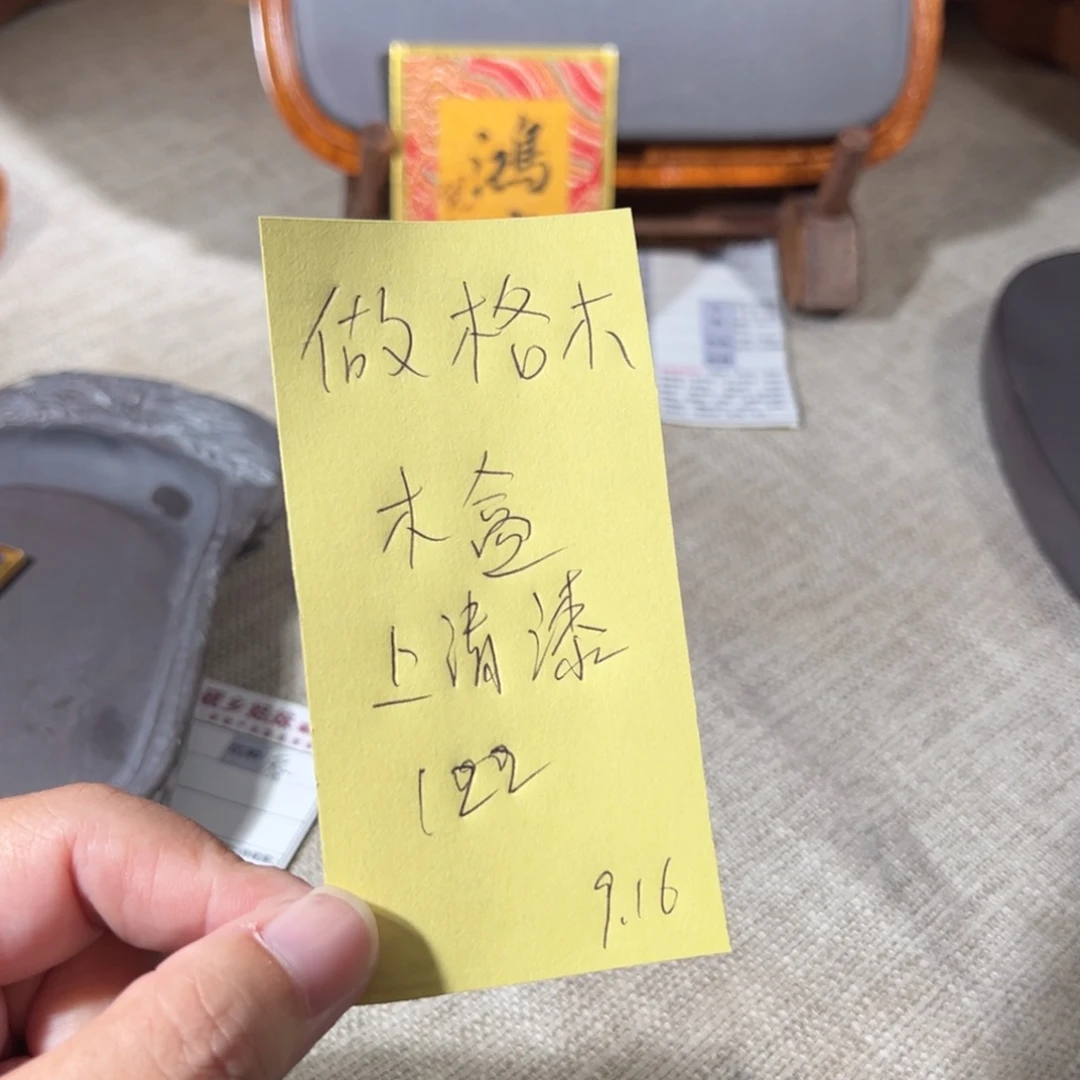 鴻
做格木
木盒
上清漆
122
9.16